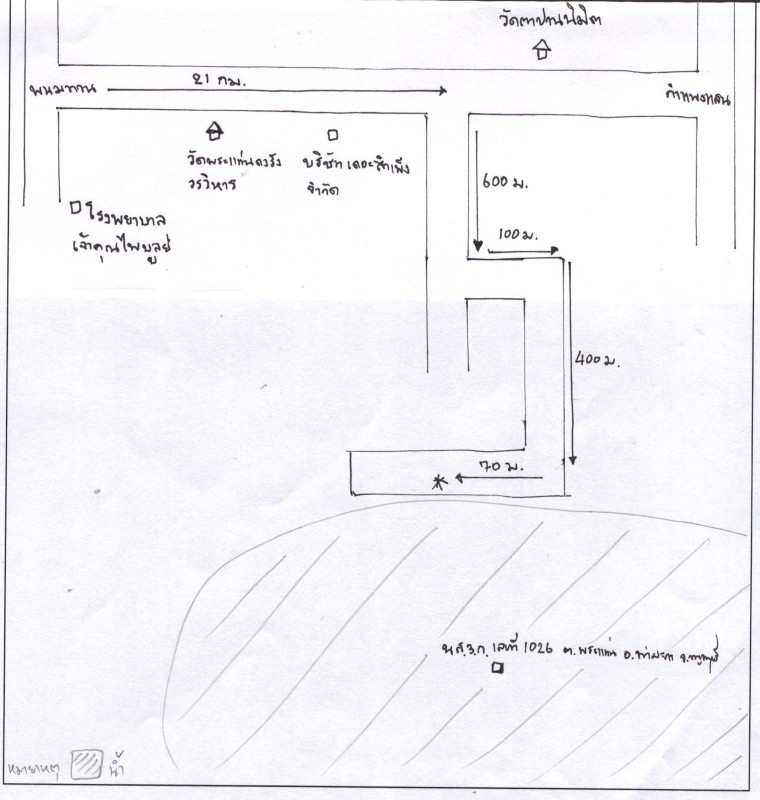 วัดตาปานนิมิต
พนมทวน
21 กม.
กำแพงแสน
วัดพระแท่นดงรัง
วรวิหาร
บริษัท เดอะสำเพ็ง
จำกัด
600 ม.
โรงพยาบาล
เจ้าคุณไพบูลย์
100 ม.
400 ม.
70 ม.
น.ส.3.ก. เลขที่ 1026 ต. พระแท่น อ. ท่ามะกา จ. กาญจน์
หมายเหตุ น้ำ